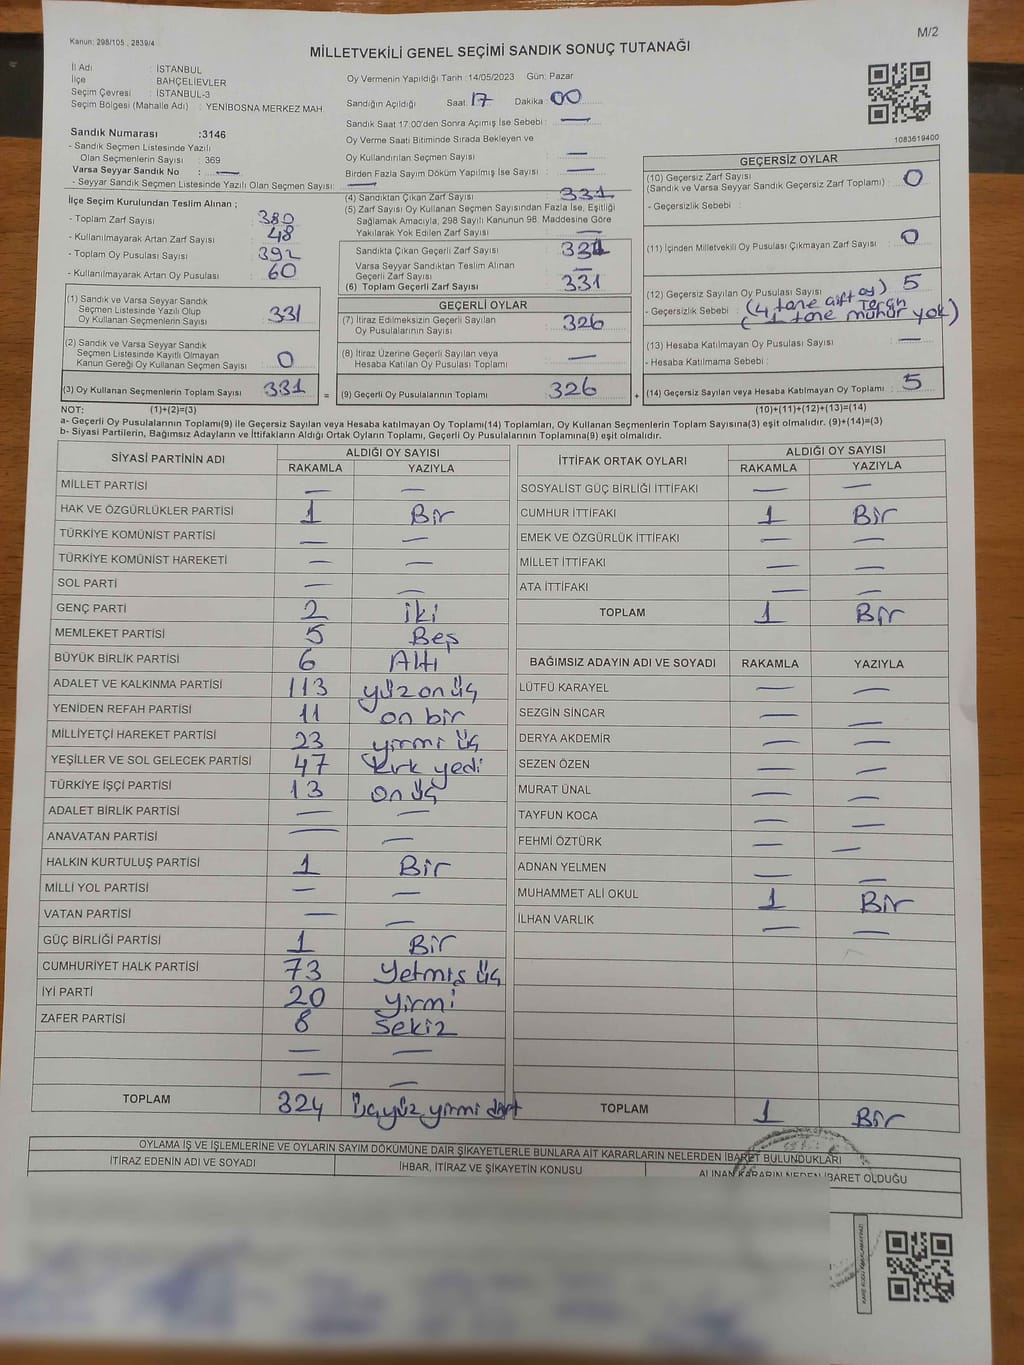 Kanun: 298/105 , 2839/4
M/2
MİLLETVEKİLİ GENEL SEÇİMİ SANDIK SONUÇ TUTANAĞI
İl Adı : İSTANBUL
İlçe BAHÇELİEVLER
Seçim Çevresi : İSTANBUL-3
Seçim Bölgesi (Mahalle Adı) : YENİBOSNA MERKEZ MAH
Sandık Numarası :3146
- Sandık Seçmen Listesinde Yazılı
Olan Seçmenlerin Sayısı : 369
Varsa Seyyar Sandık No : —
- Seyyar Sandık Seçmen Listesinde Yazılı Olan Seçmen Sayısı: —
Oy Vermenin Yapıldığı Tarih :14/05/2023 Gün: Pazar
Sandığın Açıldığı Saat: 17 Dakika: 00
Sandık Saat 17:00'den Sonra Açımış İse Sebebi : —
Oy Verme Saati Bitiminde Sırada Bekleyen ve
Oy Kullandırılan Seçmen Sayısı : —
Birden Fazla Sayım Döküm Yapılmış İse Sayısı : —
1083619400
İlçe Seçim Kurulundan Teslim Alınan ;
- Toplam Zarf Sayısı : 380
- Kullanılmayarak Artan Zarf Sayısı : 48
- Toplam Oy Pusulası Sayısı : 392
- Kullanılmayarak Artan Oy Pusulası : 60
(1) Sandık ve Varsa Seyyar Sandık
Seçmen Listesinde Yazılı Olup
Oy Kullanan Seçmenlerin Sayısı : 331
(2) Sandık ve Varsa Seyyar Sandık
Seçmen Listesinde Kayıtlı Olmayan
Kanun Gereği Oy Kullanan Seçmen Sayısı : 0
(3) Oy Kullanan Seçmenlerin Toplam Sayısı : 331
(4) Sandıktan Çıkan Zarf Sayısı : 331
(5) Zarf Sayısı Oy Kullanan Seçmen Sayısından Fazla İse, Eşitliği
Sağlamak Amacıyla, 298 Sayılı Kanunun 98. Maddesine Göre
Yakılarak Yok Edilen Zarf Sayısı : —
Sandıkta Çıkan Geçerli Zarf Sayısı : 331
Varsa Seyyar Sandıktan Teslim Alınan
Geçerli Zarf Sayısı : —
(6) Toplam Geçerli Zarf Sayısı : 331
GEÇERLİ OYLAR
(7) İtiraz Edilmeksizin Geçerli Sayılan
Oy Pusulalarının Sayısı : 326
(8) İtiraz Üzerine Geçerli Sayılan veya
Hesaba Katılan Oy Pusulası Toplamı : —
= (9) Geçerli Oy Pusulalarının Toplamı : 326
GEÇERSİZ OYLAR
(10) Geçersiz Zarf Sayısı
(Sandık ve Varsa Seyyar Sandık Geçersiz Zarf Toplamı) : 0
- Geçersizlik Sebebi :
(11) İçinden Milletvekili Oy Pusulası Çıkmayan Zarf Sayısı : 0
(12) Geçersiz Sayılan Oy Pusulası Sayısı : 5
- Geçersizlik Sebebi : (4 tane çift oy)
1 tane mühür yok)
(13) Hesaba Katılmayan Oy Pusulası Sayısı : —
- Hesaba Katılmama Sebebi :
+ (14) Geçersiz Sayılan veya Hesaba Katılmayan Oy Toplamı : 5
NOT: (1)+(2)=(3) (10)+(11)+(12)+(13)=(14)
a- Geçerli Oy Pusulalarının Toplamı(9) ile Geçersiz Sayılan veya Hesaba Katılmayan Oy Toplamı(14) Toplamları, Oy Kullanan Seçmenlerin Toplam Sayısına(3) eşit olmalıdır. (9)+(14)=(3)
b- Siyasi Partilerin, Bağımsız Adayların ve İttifakların Aldığı Ortak Oyların Toplamı, Geçerli Oy Pusulalarının Toplamına(9) eşit olmalıdır.
SİYASİ PARTİNİN ADI ALDIĞI OY SAYISI
RAKAMLA YAZIYLA
MİLLET PARTİSİ — —
HAK VE ÖZGÜRLÜKLER PARTİSİ 1 Bir
TÜRKİYE KOMÜNİST PARTİSİ — —
TÜRKİYE KOMÜNİST HAREKETİ — —
SOL PARTİ — —
GENÇ PARTİ 2 iki
MEMLEKET PARTİSİ 5 Beş
BÜYÜK BİRLİK PARTİSİ 6 Altı
ADALET VE KALKINMA PARTİSİ 113 yüz on üç
YENİDEN REFAH PARTİSİ 11 on bir
MİLLİYETÇİ HAREKET PARTİSİ 23 yirmi üç
YEŞİLLER VE SOL GELECEK PARTİSİ 47 kırk yedi
TÜRKİYE İŞÇİ PARTİSİ 13 on üç
ADALET BİRLİK PARTİSİ — —
ANAVATAN PARTİSİ — —
HALKIN KURTULUŞ PARTİSİ 1 Bir
MİLLİ YOL PARTİSİ — —
VATAN PARTİSİ — —
GÜÇ BİRLİĞİ PARTİSİ 1 Bir
CUMHURİYET HALK PARTİSİ 73 Yetmiş üç
İYİ PARTİ 20 yirmi
ZAFER PARTİSİ 8 Sekiz
— —
— —
TOPLAM 324 Üçyüz yirmi dört
İTTİFAK ORTAK OYLARI ALDIĞI OY SAYISI
RAKAMLA YAZIYLA
SOSYALİST GÜÇ BİRLİĞİ İTTİFAKI — —
CUMHUR İTTİFAKI 1 Bir
EMEK VE ÖZGÜRLÜK İTTİFAKI — —
MİLLET İTTİFAKI — —
ATA İTTİFAKI — —
TOPLAM 1 Bir
BAĞIMSIZ ADAYIN ADI VE SOYADI RAKAMLA YAZIYLA
LÜTFÜ KARAYEL — —
SEZGİN SİNCAR — —
DERYA AKDEMİR — —
SEZEN ÖZEN — —
MURAT ÜNAL — —
TAYFUN KOCA — —
FEHMİ ÖZTÜRK — —
ADNAN YELMEN — —
MUHAMMET ALİ OKUL 1 Bir
İLHAN VARLIK — —
TOPLAM 1 Bir
OYLAMA İŞ VE İŞLEMLERİNE VE OYLARIN SAYIM DÖKÜMÜNE DAİR ŞİKAYETLERLE BUNLARA AİT KARARLARIN NELERDEN İBARET BULUNDUKLARI
İTİRAZ EDENİN ADI VE SOYADI İHBAR, İTİRAZ VE ŞİKAYETİN KONUSU ALINAN KARARIN NEDEN İBARET OLDUĞU